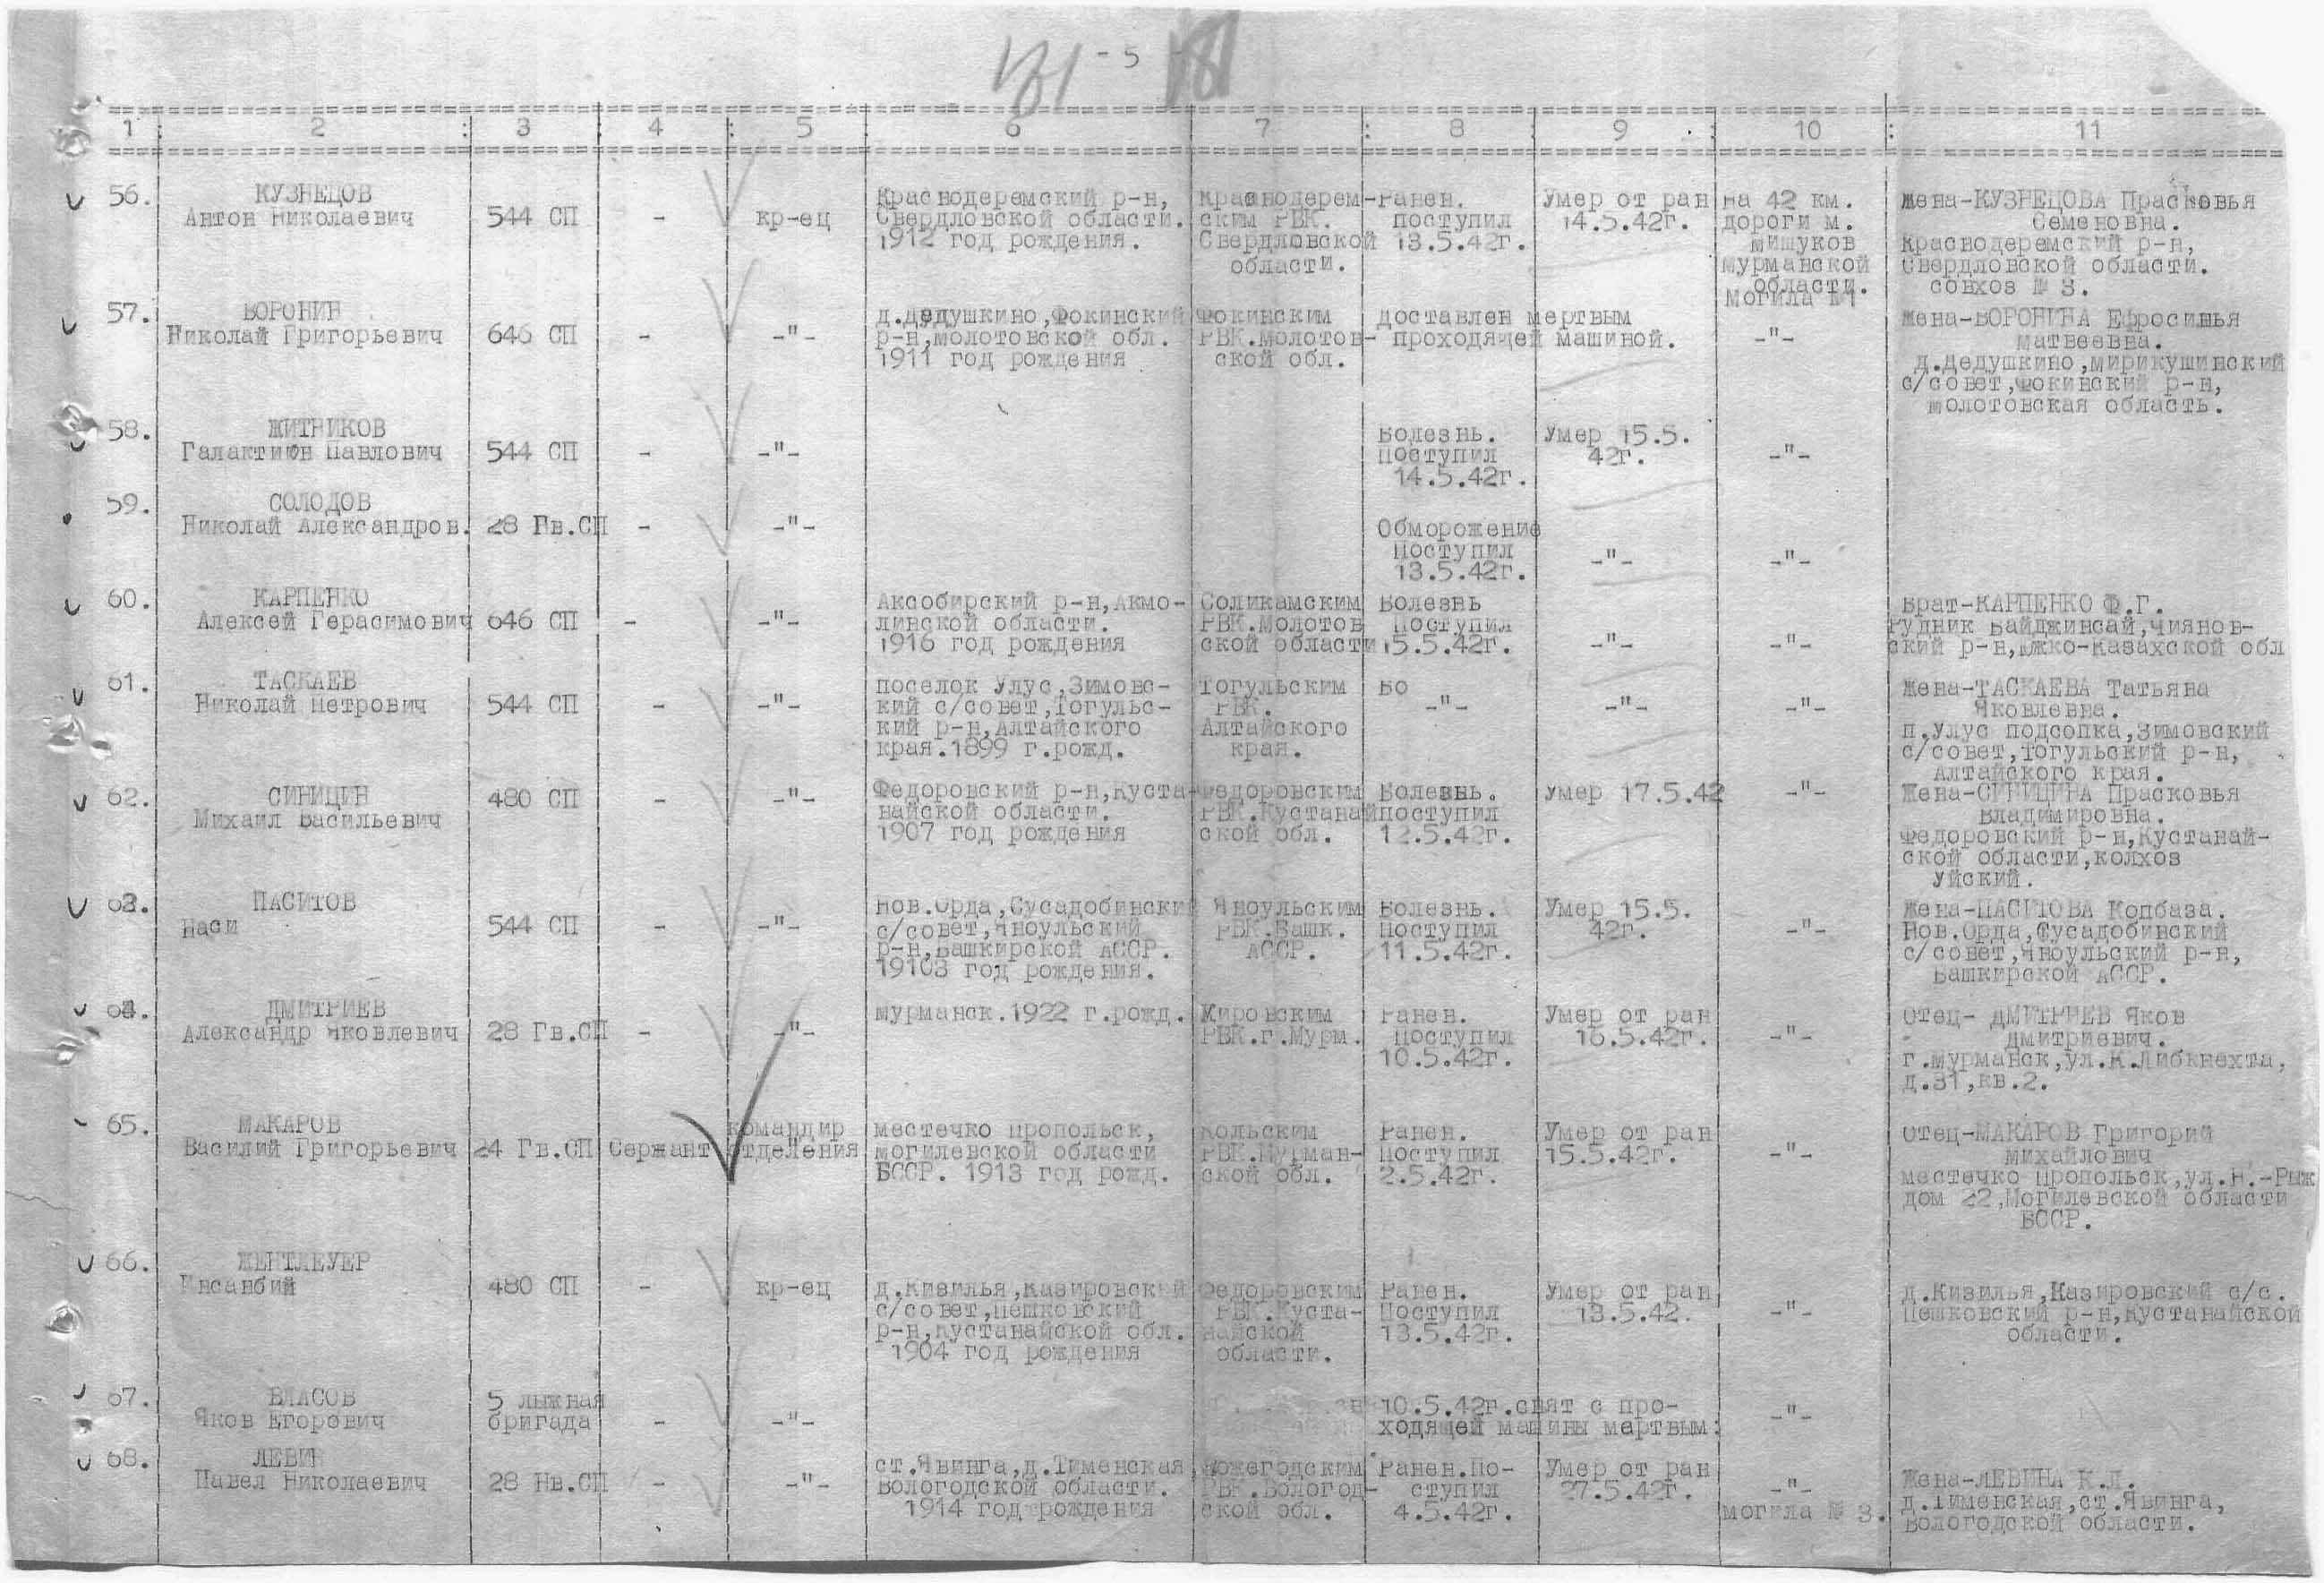 - 5
1 2 3 4 5 6 7 8 9 10 11
56. КУЗНЕЦОВ
Антон Николаевич
544 СП
-
кр-ец
Краснодеремский р-н,
Свердловской области.
1912 год рождения.
Краснодерем-
ским РВК.
Свердловской
области.
Ранен.
поступил
13.5.42г.
Умер от ран
14.5.42г.
на 42 км.
дороги м.
Мишуков
Мурманской
области.
Могила №1
Жена-КУЗНЕЦОВА Прасковья
Семеновна.
Краснодеремский р-н,
Свердловской области.
совхоз № 3.
57. ВОРОНИН
Николай Григорьевич
646 СП
-
-"-
д.Дедушкино,Фокинский
р-н,Молотовской обл.
1911 год рождения
Фокинским
РВК.Молотов-
ской обл.
Доставлен мертвым
проходящей машиной.
-"-
Жена-ВОРОНИНА Ефросинья
Матвеевна.
д.Дедушкино,Мирикушинский
с/совет,Фокинский р-н,
Молотовская область.
58. ЖИТНИКОВ
Галактион Павлович
544 СП
-
-"-
Болезнь.
Поступил
14.5.42г.
Умер 15.5.
42г.
-"-
59. СОЛОДОВ
Николай Александров.
28 Гв.СП
-
-"-
Обморожение
Поступил
13.5.42г.
-"-
-"-
60. КАРПЕНКО
Алексей Герасимович
646 СП
-
-"-
Аксобирский р-н,Акмо-
линской области.
1916 год рождения
Соликамским
РВК.Молотов
ской области
Болезнь
Поступил
15.5.42г.
-"-
-"-
Брат-КАРПЕНКО Ф.Г.
Рудник Байджинсай,Чиянов-
ский р-н,Южно-Казахской обл
61. ТАСКАЕВ
Николай Петрович
544 СП
-
-"-
поселок Улус,Зимовс-
кий с/совет,Тогульс-
кий р-н,Алтайского
края.1899 г.рожд.
Тогульским
РВК.
Алтайского
края.
Бо
-"-
-"-
-"-
Жена-ТАСКАЕВА Татьяна
Яковлевна.
п.Улус подсопка,Зимовский
с/совет,Тогульский р-н,
Алтайского края.
62. СИНИЦИН
Михаил Васильевич
480 СП
-
-"-
Федоровский р-н,Куста-
найской области.
1907 год рождения
Федоровским
РВК.Кустанай
ской обл.
Болезнь.
поступил
12.5.42г.
Умер 17.5.42
-"-
Жена-СИНИЦИНА Прасковья
Владимировна.
Федоровский р-н,Кустанай-
ской области,колхоз
Уйский.
63. ПАСИТОВ
Наси
544 СП
-
-"-
Нов.Орда,Сусадобинский
с/совет,Яноульский
р-н,Башкирской АССР.
19103 год рождения.
Яноульским
РВК.Башк.
АССР.
Болезнь.
Поступил
11.5.42г.
Умер 15.5.
42г.
-"-
Жена-ПАСИТОВА Копбаза.
Нов.Орда,Сусадобинский
с/совет,Яноульский р-н,
Башкирской АССР.
64. ДМИТРИЕВ
Александр Яковлевич
28 Гв.СП
-
-"-
Мурманск.1922 г.рожд.
Кировским
РВК.г.Мурм.
Ранен.
Поступил
10.5.42г.
Умер от ран
16.5.42г.
-"-
Отец- ДМИТРИЕВ Яков
Дмитриевич.
г.Мурманск,ул.К.Либкнехта,
д.31,кв.2.
65. МАКАРОВ
Василий Григорьевич
24 Гв.СП
Сержант
командир
отделения
местечко Пропольск,
Могилевской области
БССР. 1913 год рожд.
Кольским
РВК.Мурман-
ской обл.
Ранен.
Поступил
2.5.42г.
Умер от ран
15.5.42г.
-"-
Отец-МАКАРОВ Григорий
Михайлович
местечко Пропольск,ул.Н.-Рыж
дом 22,Могилевской области
БССР.
66. ЖЕНТЛЕУЕР
Инсанбий
480 СП
-
кр-ец
д.Кизилья,Казировский
с/совет,Пешковский
р-н,Кустанайской обл.
1904 год рождения
Федоровским
РВК.Куста-
найской
области.
Ранен.
Поступил
13.5.42г.
Умер от ран
13.5.42.
-"-
д.Кизилья,Казировский с/с.
Пешковский р-н,Кустанайской
области.
67. ВЛАСОВ
Яков Егорович
5 лыжная
бригада
-
-"-
10.5.42г.снят с про-
ходящей машины мертвым:
-"-
68. ЛЕВИН
Павел Николаевич
28 Нв.СП
-
-"-
ст.Явинга,д.Тименская,
Вологодской области.
1914 год рождения
Вожегодским
РВК.Вологод-
ской обл.
Ранен.По-
ступил
4.5.42г.
Умер от ран
27.5.42г.
-"-
могила № 3.
Жена-ЛЕВИНА К.Л.
д.Тименская,ст.Явинга,
Вологодской области.